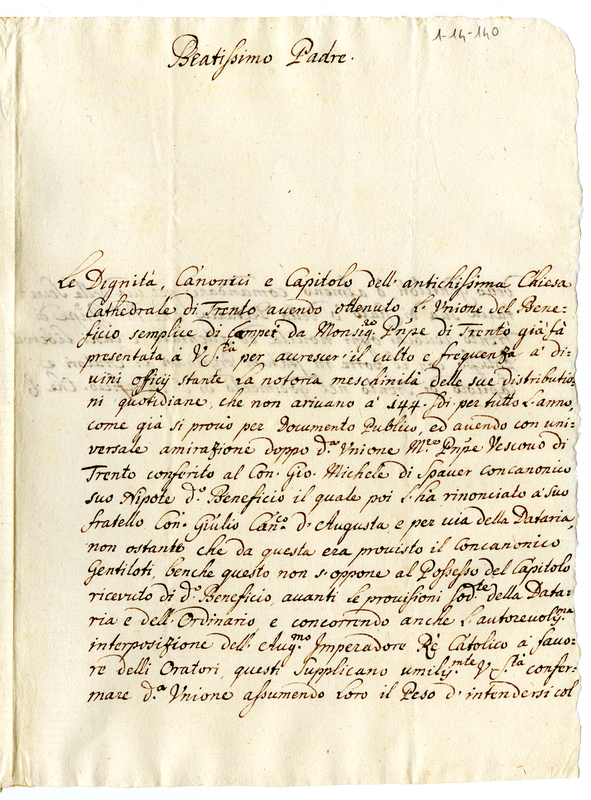 1-14-140
Beatissimo Padre.
Le Dignità, Canonici e Capitolo dell' antichissima Chiesa
Cathedrale di Trento avendo ottenuto l'Unione del Bene-
ficio semplice di Campei da Monsig.r Pnpe di Trento già fà
presentata à V. S.tà per accrescer' il culto e frequenza a' di-
vini officij stante la notoria meschinità delle sue distributio-
ni quotidiane, che non arivano a' 144. di per tutto l'anno,
come già si provò per documento Publico, ed avendo con uni-
versale amirazione doppo d.a Unione Pnpe Vescovo di
Trento conferito al Con. Gio. Michele di Spaver concanonico
suo Nipote d.o Beneficio il quale poi l'ha rinonciato a' suo
fratello Con. Giulio Can.co d'Augusta, e per via della Dataria,
non ostante che da questa era provisto il Concanonico
Gentiloti, benche questo non s'oppone al Possesso del Capitolo
ricevuto di d.o Beneficio, avanti le provisioni sod.te della Data-
ria e dell' Ordinario e concorrendo anche l'autorevoliss.ma
interposizione dell' Aug.mo Imperadore Rè Catolico a' favo-
re delli Oratori, questi supplicano umilis.mte V. S.tà confer-
mare d.a Unione assumendo loro il Peso d' intendersi col